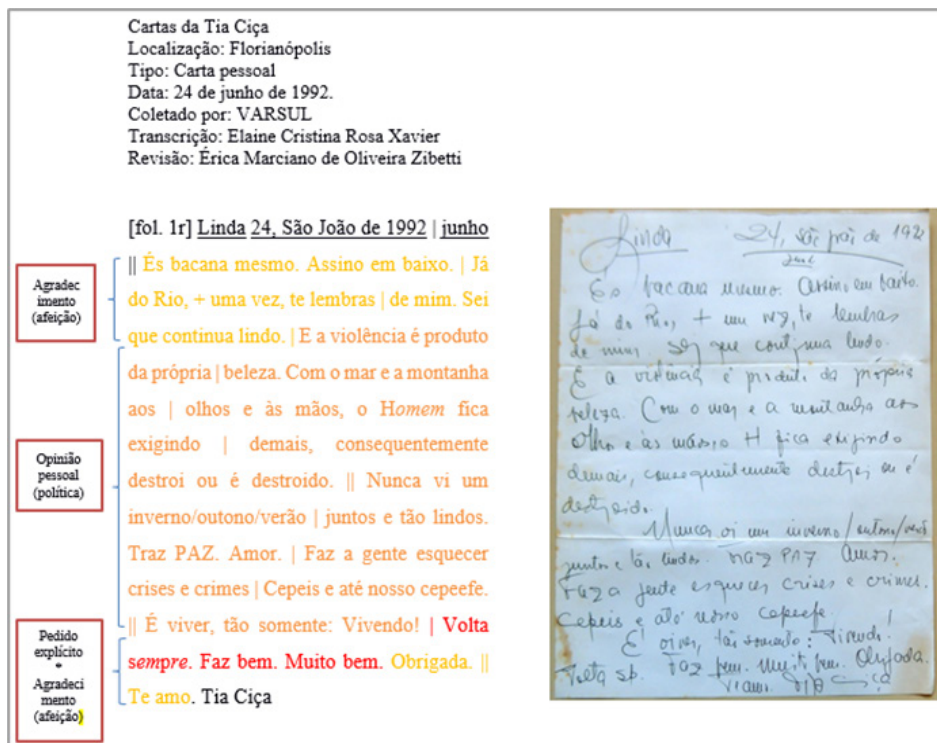 Cartas da Tia Ciça
Localização: Florianópolis
Tipo: Carta pessoal
Data: 24 de junho de 1992.
Coletado por: VARSUL
Transcrição: Elaine Cristina Rosa Xavier
Revisão: Érica Marciano de Oliveira Zibetti
[fol. 1r] Linda 24, São João de 1992 | junho
Agradec
imento
(afeição)
|| És bacana mesmo. Assino em baixo. | Já
do Rio, + uma vez, te lembras | de mim. Sei
que continua lindo. | E a violência é produto
da própria | beleza. Com o mar e a montanha
aos | olhos e às mãos, o Homem fica
exigindo | demais, consequentemente
destroi ou é destroido. || Nunca vi um
inverno/outono/verão | juntos e tão lindos.
Traz PAZ. Amor. | Faz a gente esquecer
crises e crimes | Cepeis e até nosso cepeefe.
|| É viver, tão somente: Vivendo! | Volta
sempre. Faz bem. Muito bem. Obrigada. ||
Te amo. Tia Ciça
Opinião
pessoal
(política)
Pedido
explícito
+
Agradeci
mento
(afeição)
Linda 24, São João de 1992
junho
És bacana mesmo. Assino em baixo.
Já do Rio, + uma vez, te lembras
de mim. Sei que continua lindo.
E a violência é produto da própria
beleza. Com o mar e a montanha aos
olhos e às mãos, o H fica exigindo
demais, consequentemente destroi ou é
destroido.
Nunca vi um inverno/outono/verão
juntos e tão lindos. Traz PAZ Amor.
Faz a gente esquecer crises e crimes.
Cepeis e até nosso cepeefe.
É viver, tão somente: Vivendo!
Volta sp. Faz bem. Muito bem. Obrigada.
Te amo. Tia Ciça